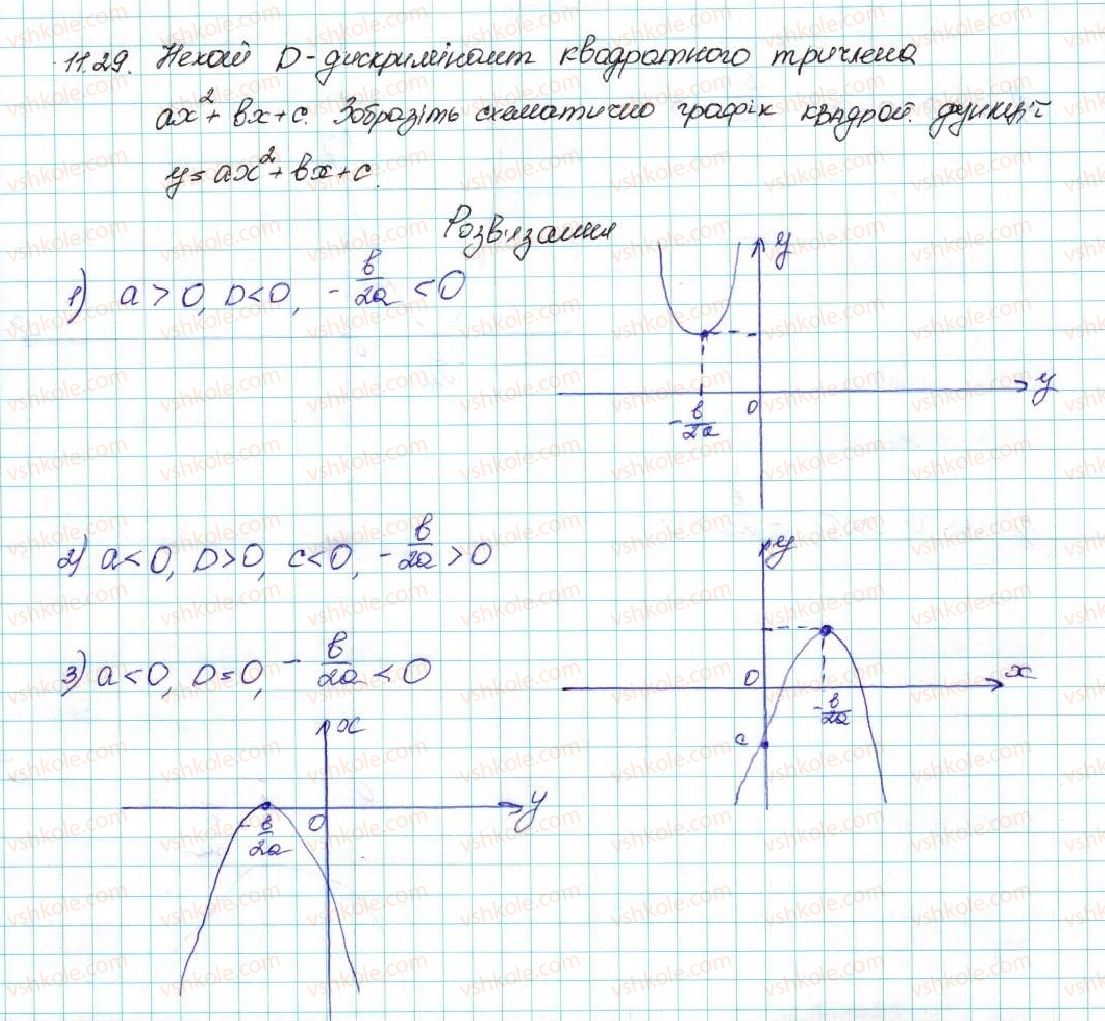 11.29. Нехай D-дискримінант квадратного тричлена
ax²+вx+c. Зобразіть схематично графік квадрат. функції
y=ax²+вx+c.
Розв'язання
1) a>0, D<0, -в/2a <0
y
y
0
-в/2a
2) a<0, D>0, c<0, -в/2a >0
y
0
x
-в/2a
c
3) a<0, D=0, -в/2a <0
x
y
0
-в/2a
vshkole.com